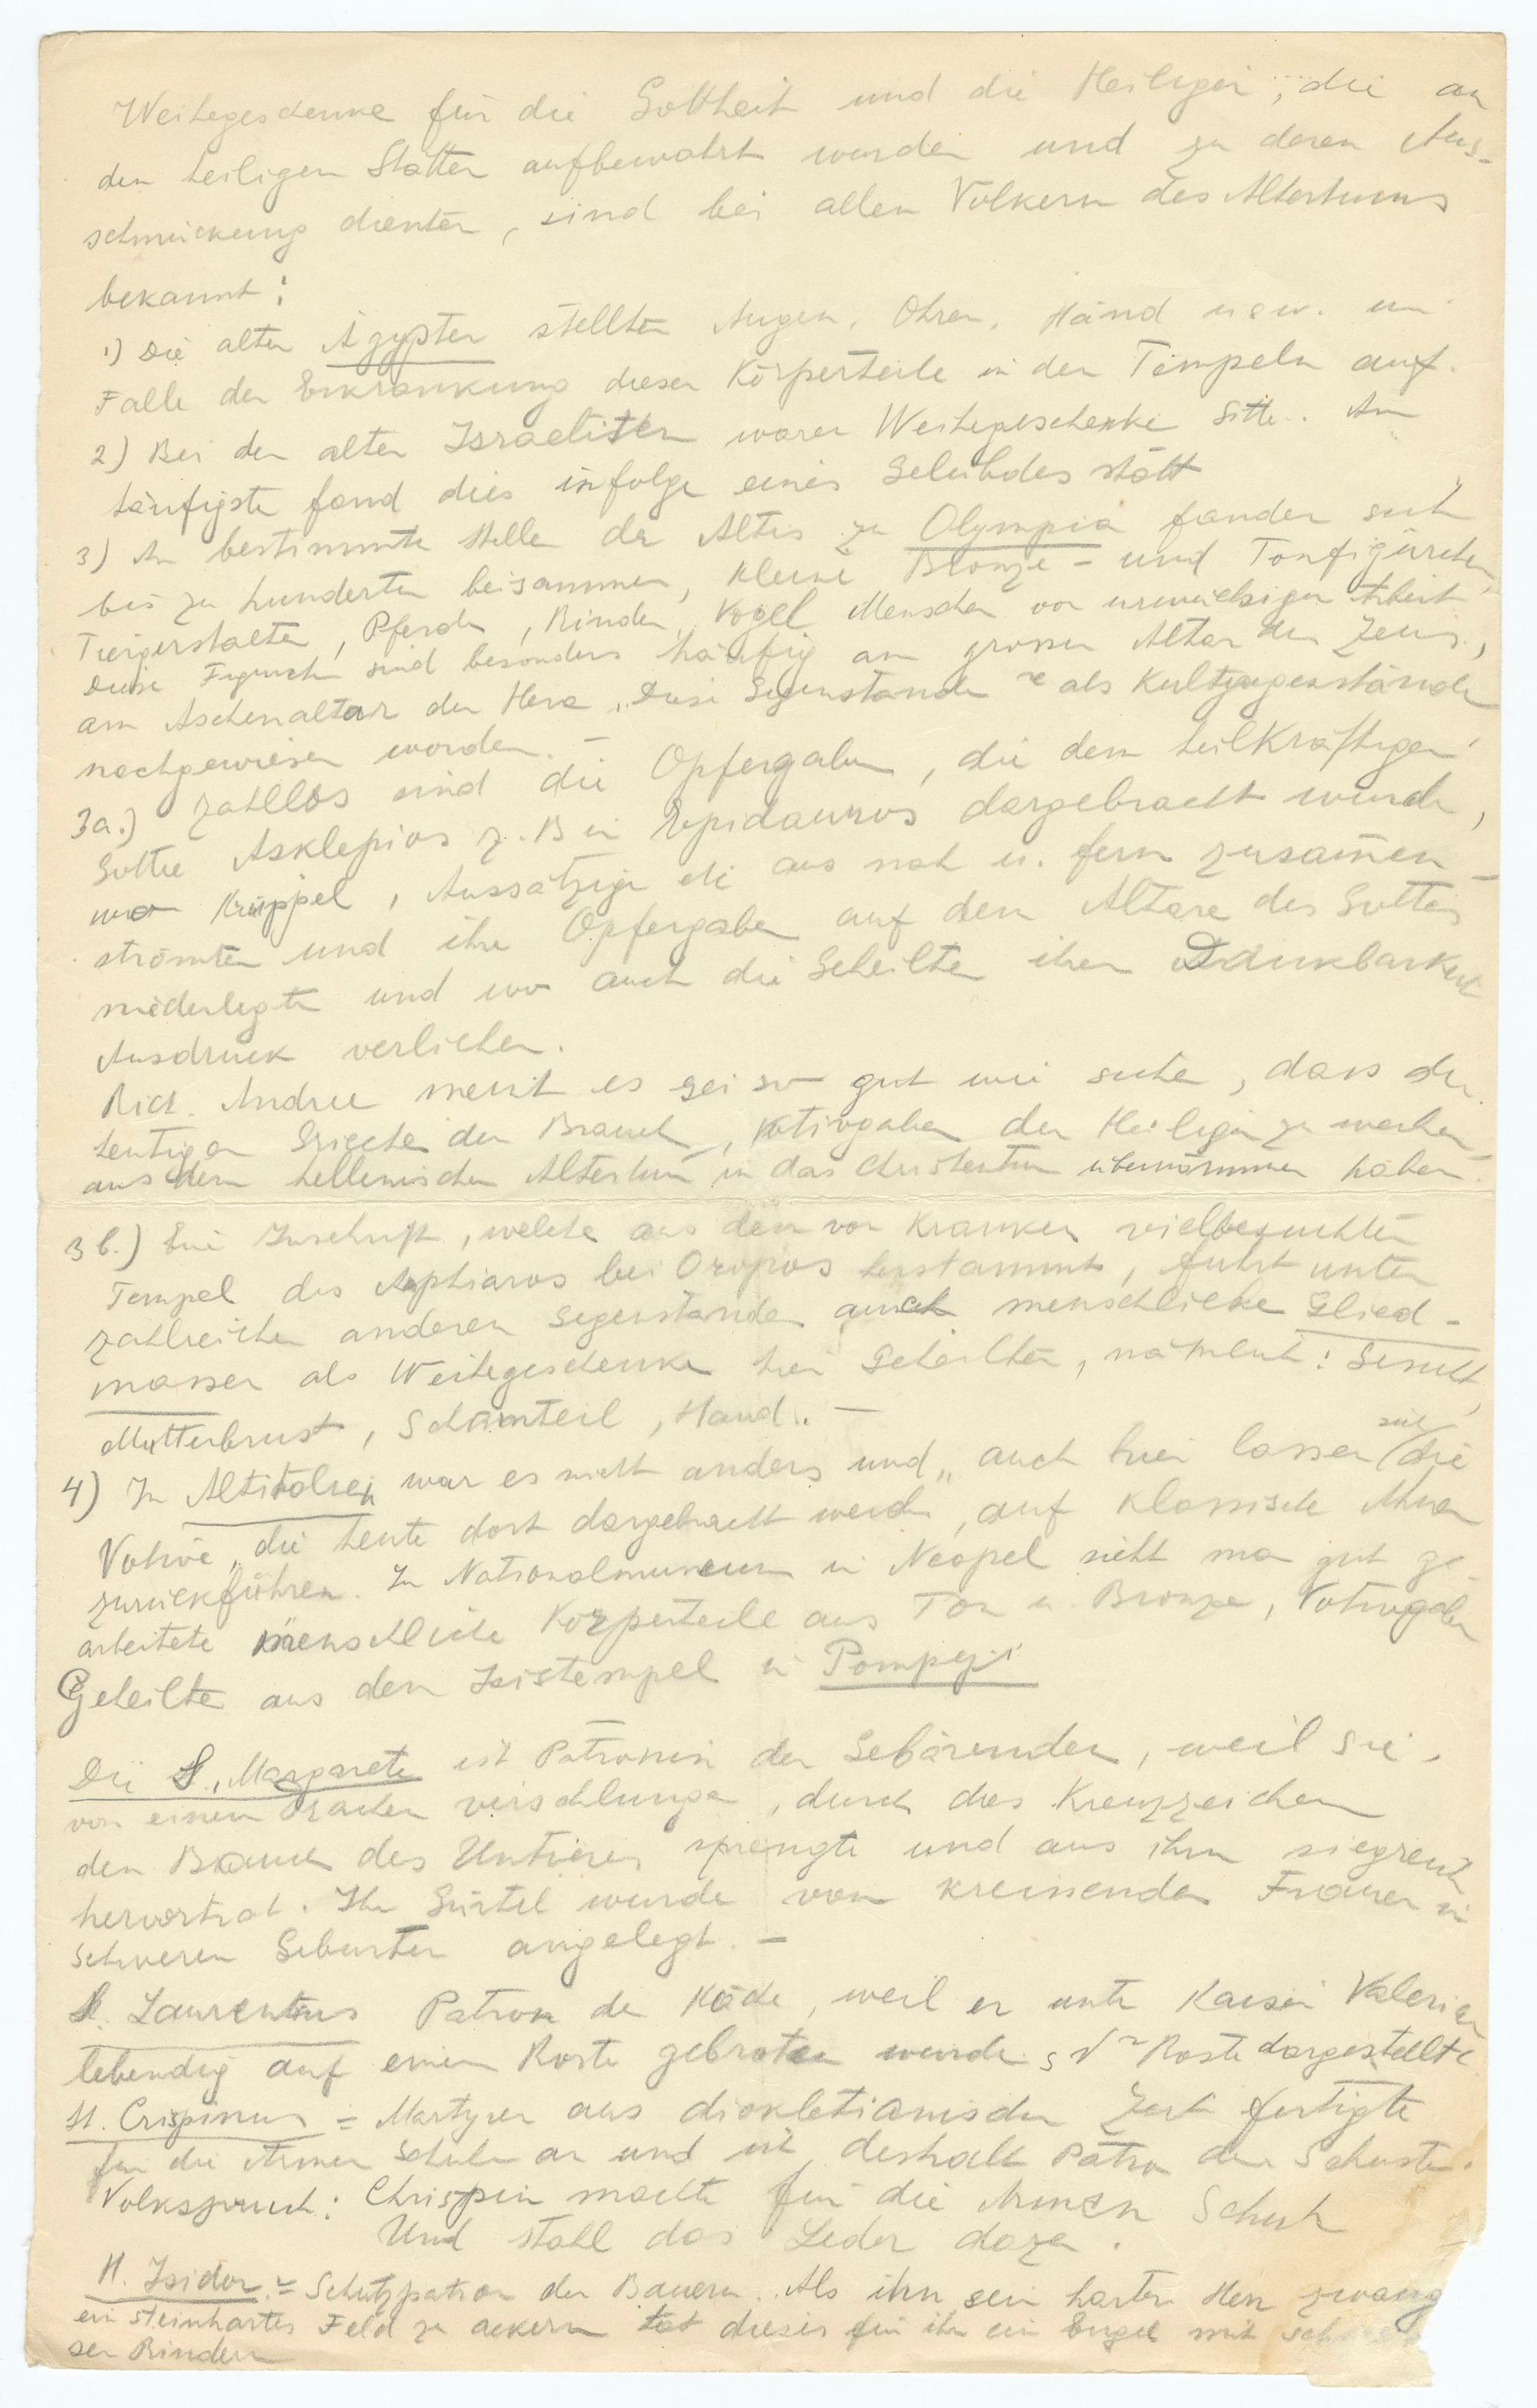 Weihegeschenke für die Gottheit und die Heiligen, die an
den heiligen Stätten aufbewahrt wurden und zu deren Aus-
schmückung dienten, sind bei allen Völkern des Altertums
bekannt:
1) Die alten Ägypter stellten Augen, Ohren, Händ usw. im
Falle der Erkrankung dieser Körperteile in den Tempeln auf.
2) Bei den alten Israeliten waren Weihegeschenke Sitte. Am
häufigste fand dies infolge eines Gelübdes statt
3) An bestimmte Stelle der Altis zu Olympia fanden sich
bis zu hunderten beisammen, kleine Bronze- und Tonfigürchen,
Tiergestalten, Pferde, Rinder, Vögel Menschen von urwüchsiger Arbeit.
Diese Figuren sind besonders häufig am grossen Altar des Zeus,
am Aschenaltar der Hera, Diese Gegenstände als Kultgegenstände
nachgewiesen worden. –
3a.) Zahllos sind die Opfergaben, die dem heilkräftigen
Gotte Asklepios z. B in Epidauros dargebracht wurde,
wo Krüppel, Aussätzige etc aus nah u. fern zusam̄en-
strömten und ihre Opfergaben auf dem Altare des Gottes
niederlegte und wo auch die Geheilte ihren Dankbarkeit
Ausdruck verliehen.
Rich. Andree meint es sei so gut wie sicher, dass die
heutigen Griechen den Brauch, Votivgaben den Heiligen zu weihen
aus dem hellenischen Altertum in das Christentum übernommen haben.
3b.) Eine Inschrift, welche aus dem von Kranken vielbesuchten
Tempel des Amphiaros bei Oropos herstammt, führt unter
zahlreichen anderen Gegenstände auch menschliche Glied-
massen als Weihegeschenke der Geheilten, nähmlich: Gesicht,
Mutterbrust, Schamteil, Hand. –
4) In Altitalien war es nicht anders und „auch hier lassen sich die
Votive, die heute dort dargebracht werden, auf klassische Ahnen
zurückführen. Im Nationalmuseum in Neapel sieht man gut ge-
arbeitete menschliche Körperteile aus Ton u. Bronze, Votivgaben
Geheilte aus dem Isistempel in Pompeji
Die St. Margarete ist Patronin der Gebärenden, weil sie,
von einem Drachen verschlungen, durch das Kreuzzeichen
den Bauch des Untieres sprengte und aus ihm siegreich
hervortrat. Ihr Gürtel wurde von kreissenden Frauen in
schweren Geburten angelegt. –
St. Laurentius Patron der Köche, weil er unter Kaiser Valerian
lebendig auf einem Roste gebraten wurde Roste dargestellt
St. Crispinus = Martyrer aus diokletianischer Zeit fertigte
für die Armen Schuhe an und ist deshalb Patron der Schuster.
Volksspruch: Chrispin machte für die Armen Schuh
Und stahl das Leder dazu.
St. Isidor = Schutzpatron der Bauern. Als ihn sein harter Herr zwang
ein steinhartes Feld zu ackern tat dieses für ihn ein Engel mit
sen Rindern